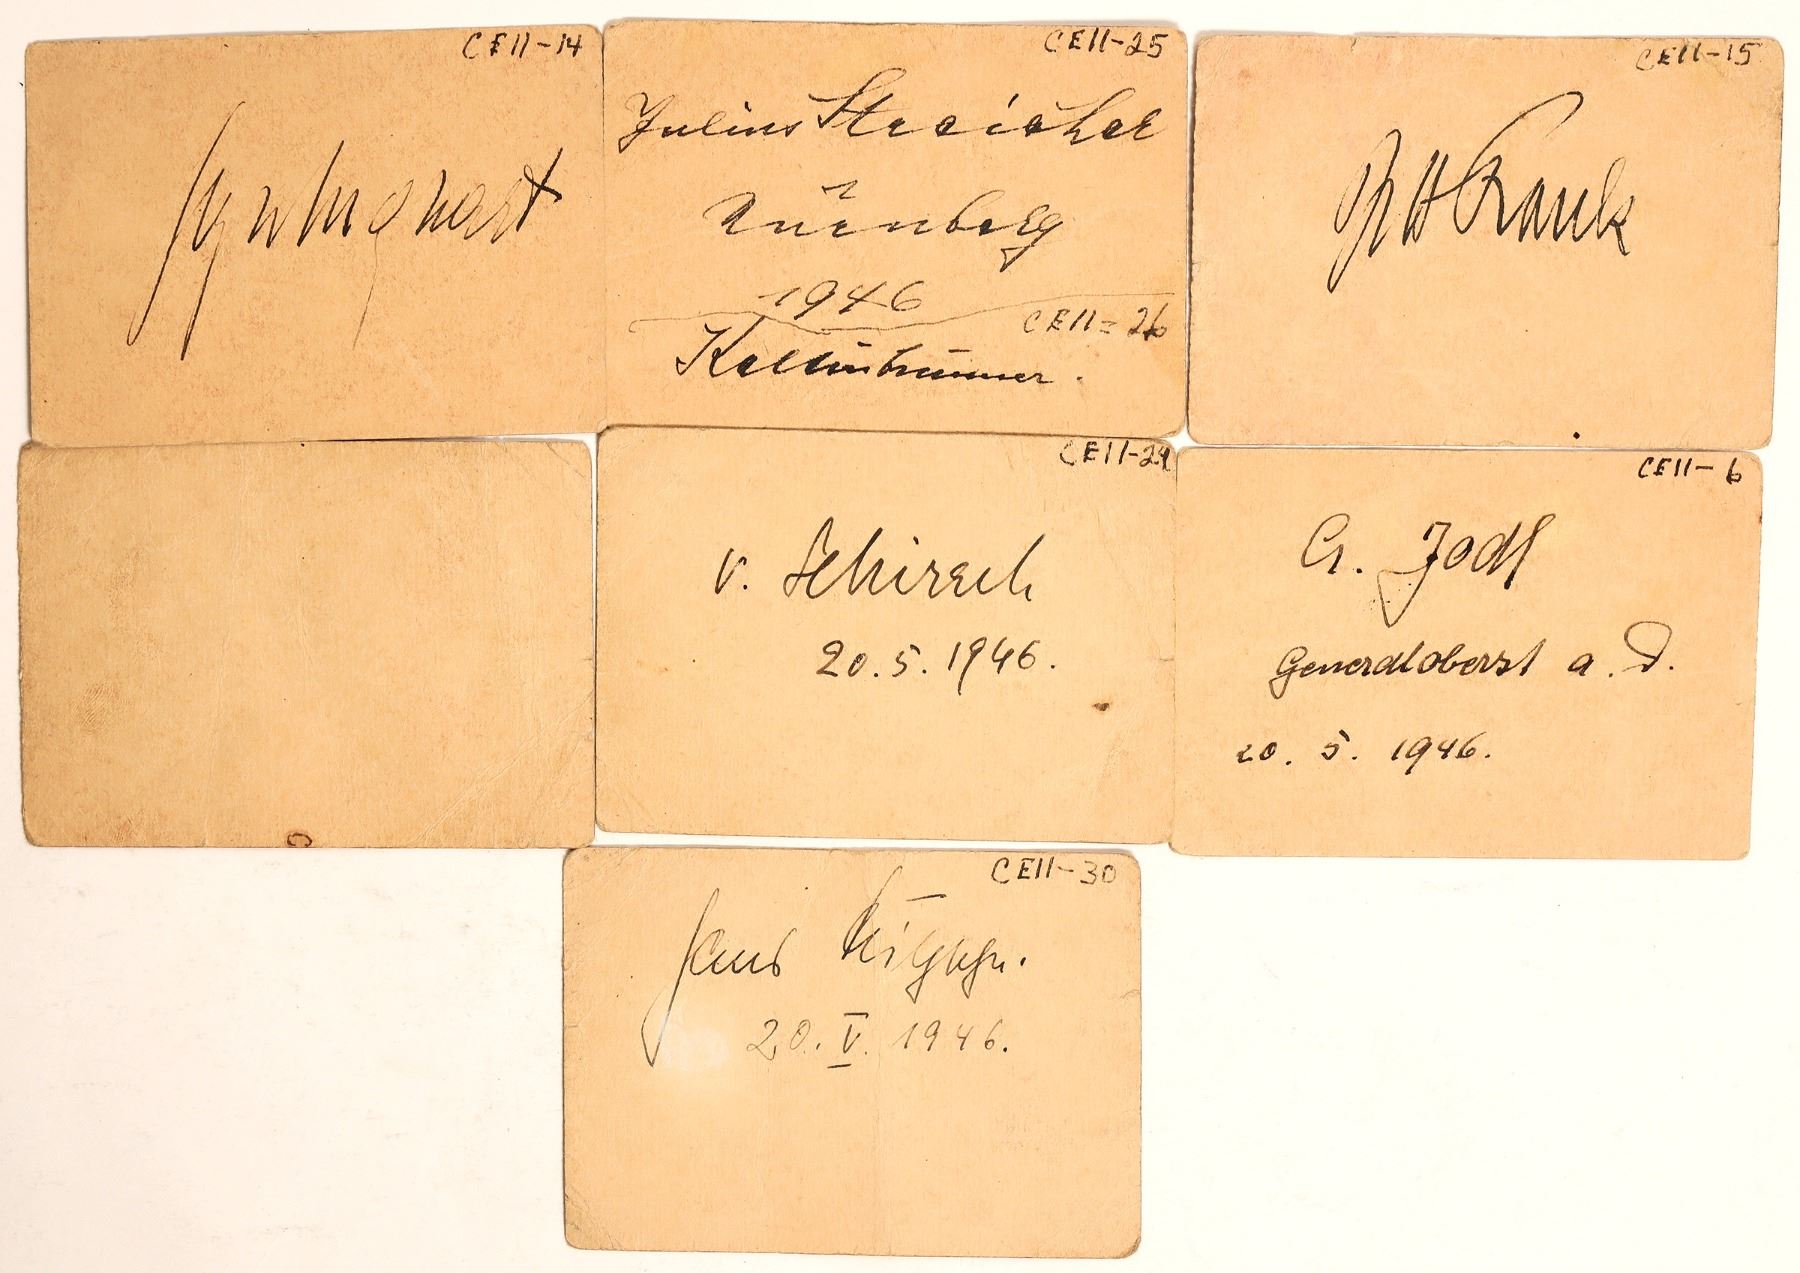 CEll-14
Seyß-Inquart
CEll-25
Julius Streicher
Nürnberg
1946
CEll=26
Kaltenbrunner.
CEll-15
Dr H Frank
CEll-29
v. Schirach
20.5.1946.
CEll-6
A. Jodl
Generaloberst a. D.
20. 5. 1946.
CEll-30
Hans Fritzsche.
20. V. 1946.